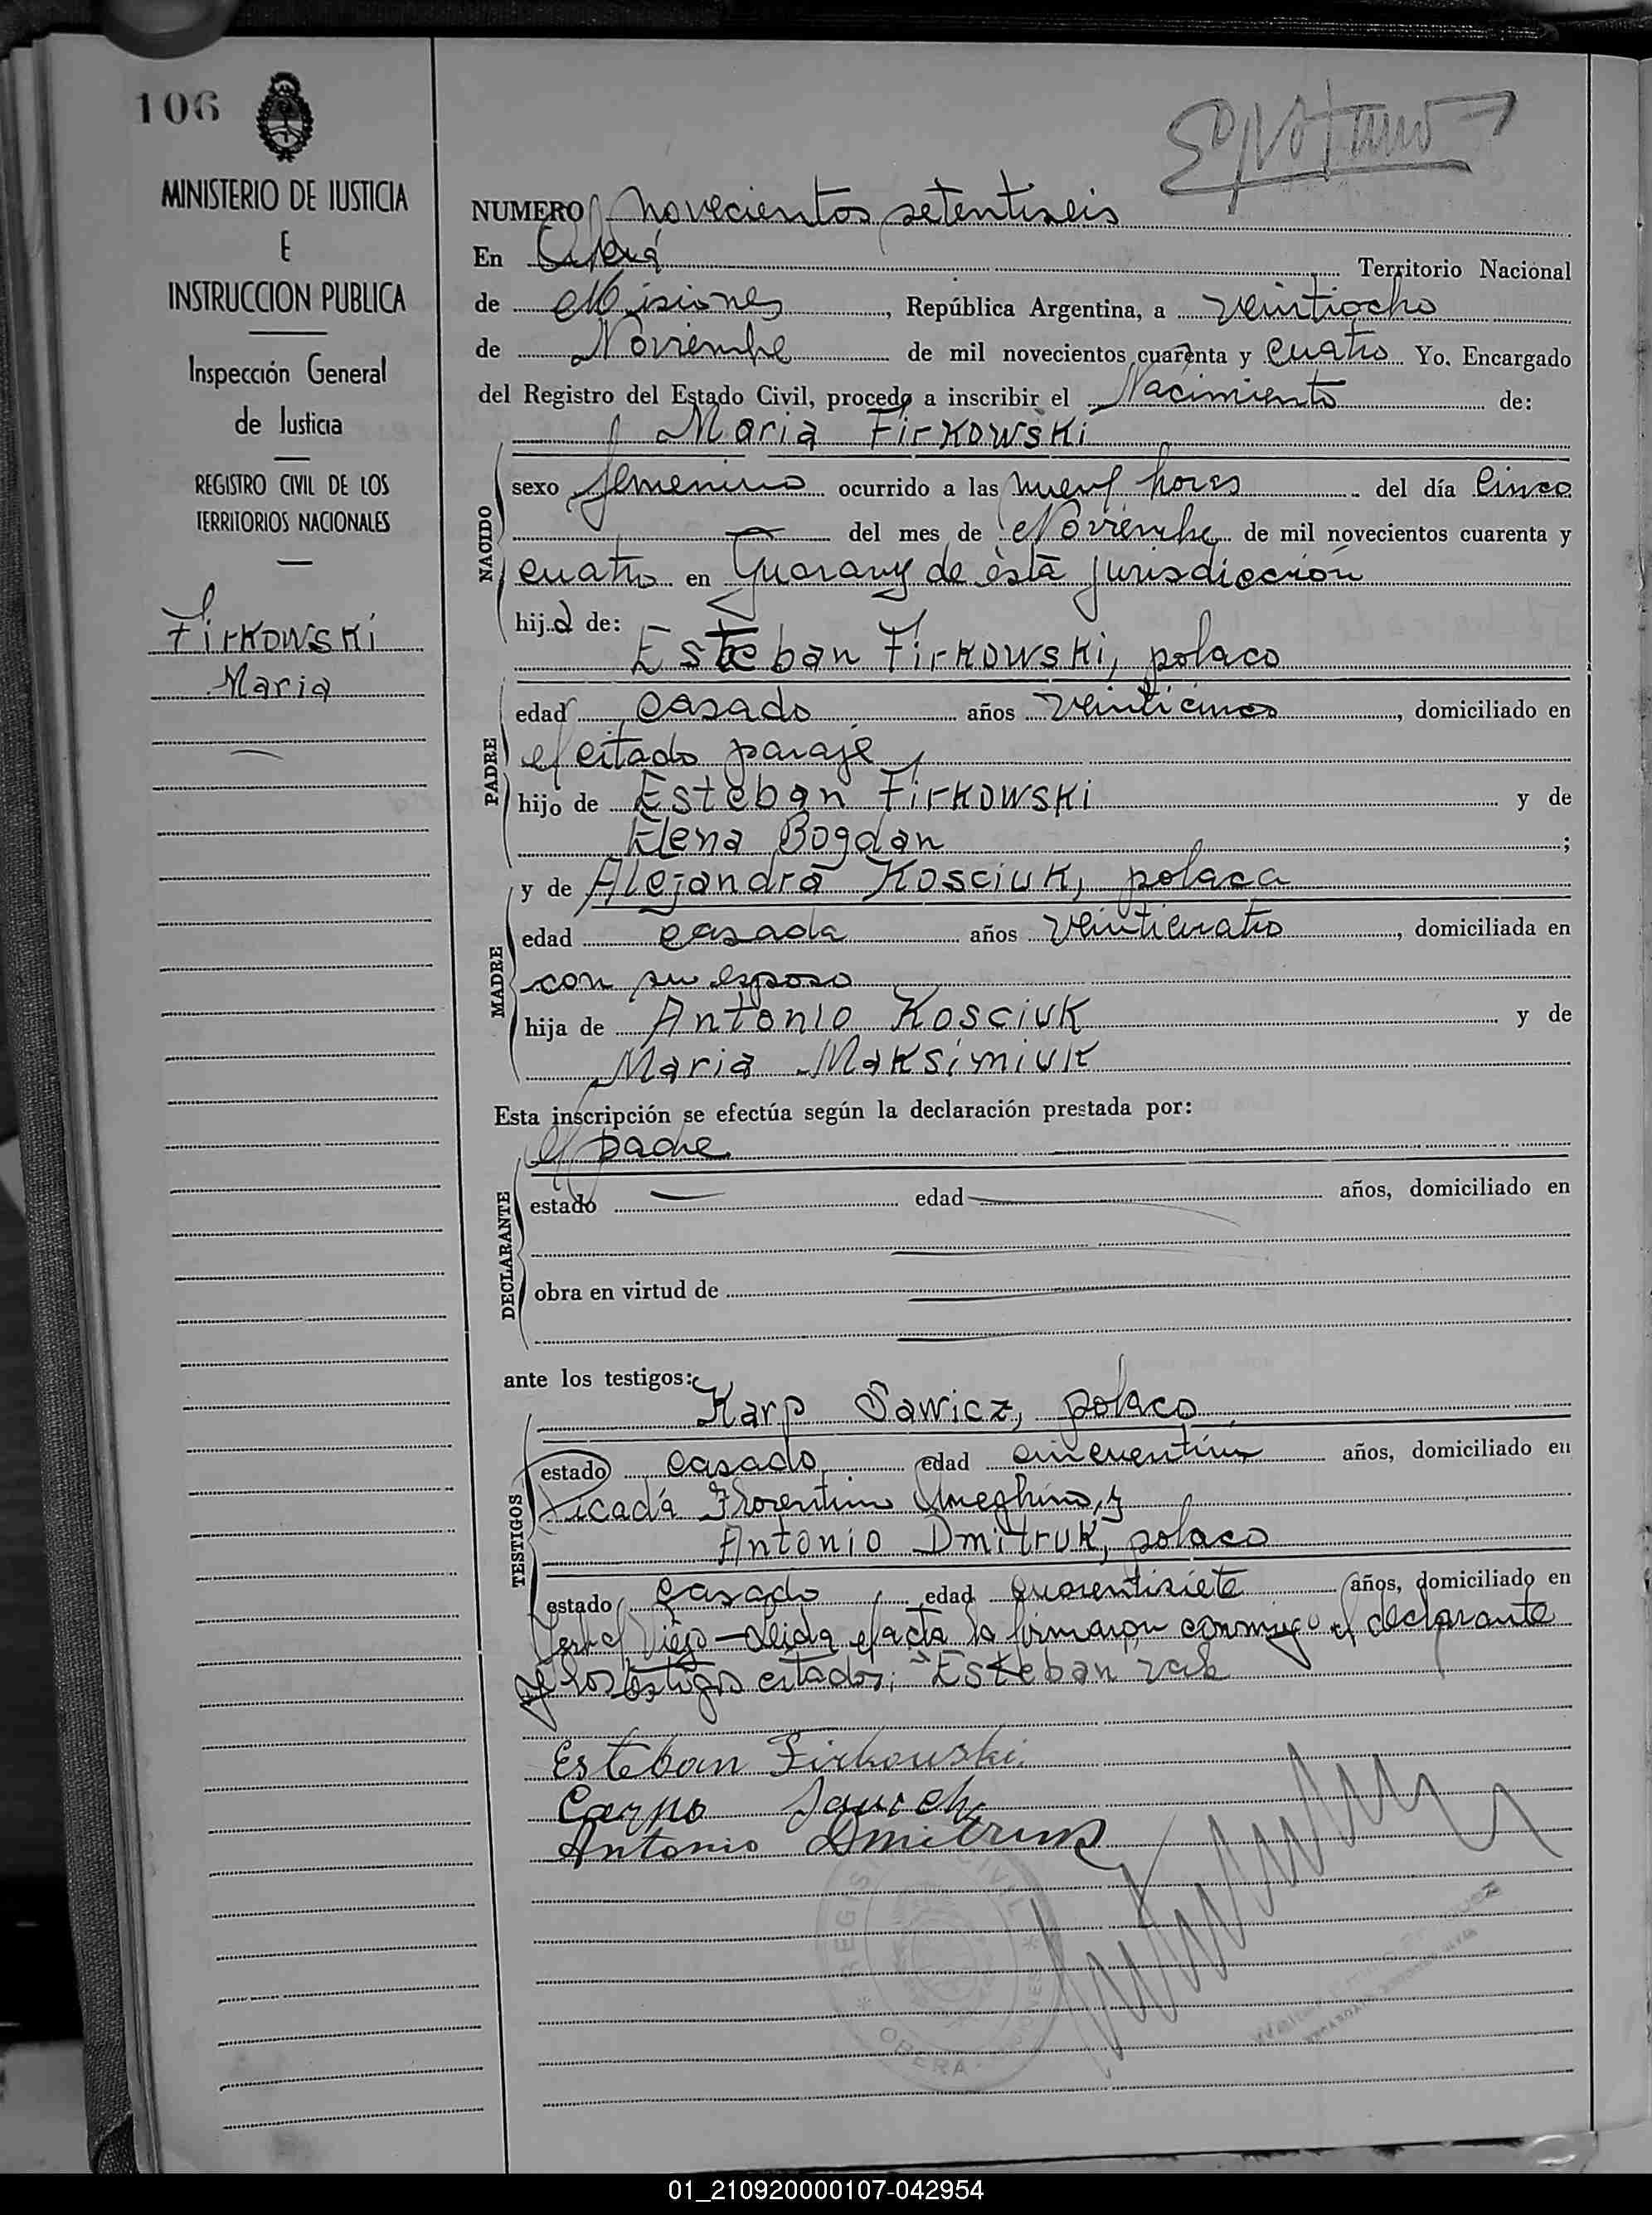 106
MINISTERIO DE JUSTICIA
E
INSTRUCCION PUBLICA
Inspección General
de Justicia
REGISTRO CIVIL DE LOS
TERRITORIOS NACIONALES
Firkowski
Maria
NUMERO novecientos setentiseis
En Oberá Territorio Nacional
de Misiones, República Argentina, a veintiocho
de Noviembre de mil novecientos cuarenta y cuatro Yo. Encargado
del Registro del Estado Civil, procedo a inscribir el Nacimiento de:
Maria Firkowski
NACIDO
sexo femenino ocurrido a las nueve horas del día Cinco
del mes de Noviembre de mil novecientos cuarenta y
cuatro en Guarany de èsta jurisdiccion
hija de:
Esteban Firkowski, polaco
PADRE
edad casado años veinticinco, domiciliado en
el citado paraje
hijo de Esteban Firkowski y de
Elena Bogdan ;
y de Alejandra Kosciuk, polaca
MADRE
edad casada años veinticuatro, domiciliada en
con su esposo
hija de Antonio Kosciuk y de
Maria Maksimiuk
Esta inscripción se efectúa según la declaración prestada por:
el padre
DECLARANTE
estado edad años, domiciliado en
obra en virtud de
ante los testigos:
Karp Sawicz, polaco
TESTIGOS
estado casado edad cincuentiun años, domiciliado en
Picada Florentino Ameghino, y
Antonio Dmitruk, polaco
estado casado edad cuarentisiete años, domiciliado en
Viejo - Leida el acta la firmaron conmigo el declarante
y los testigos citados; Esteban vale
Esteban Firkowski
Antonio Dmitruk
REGISTRO CIVIL
OBERA - MISIONES
01_210920000107-042954